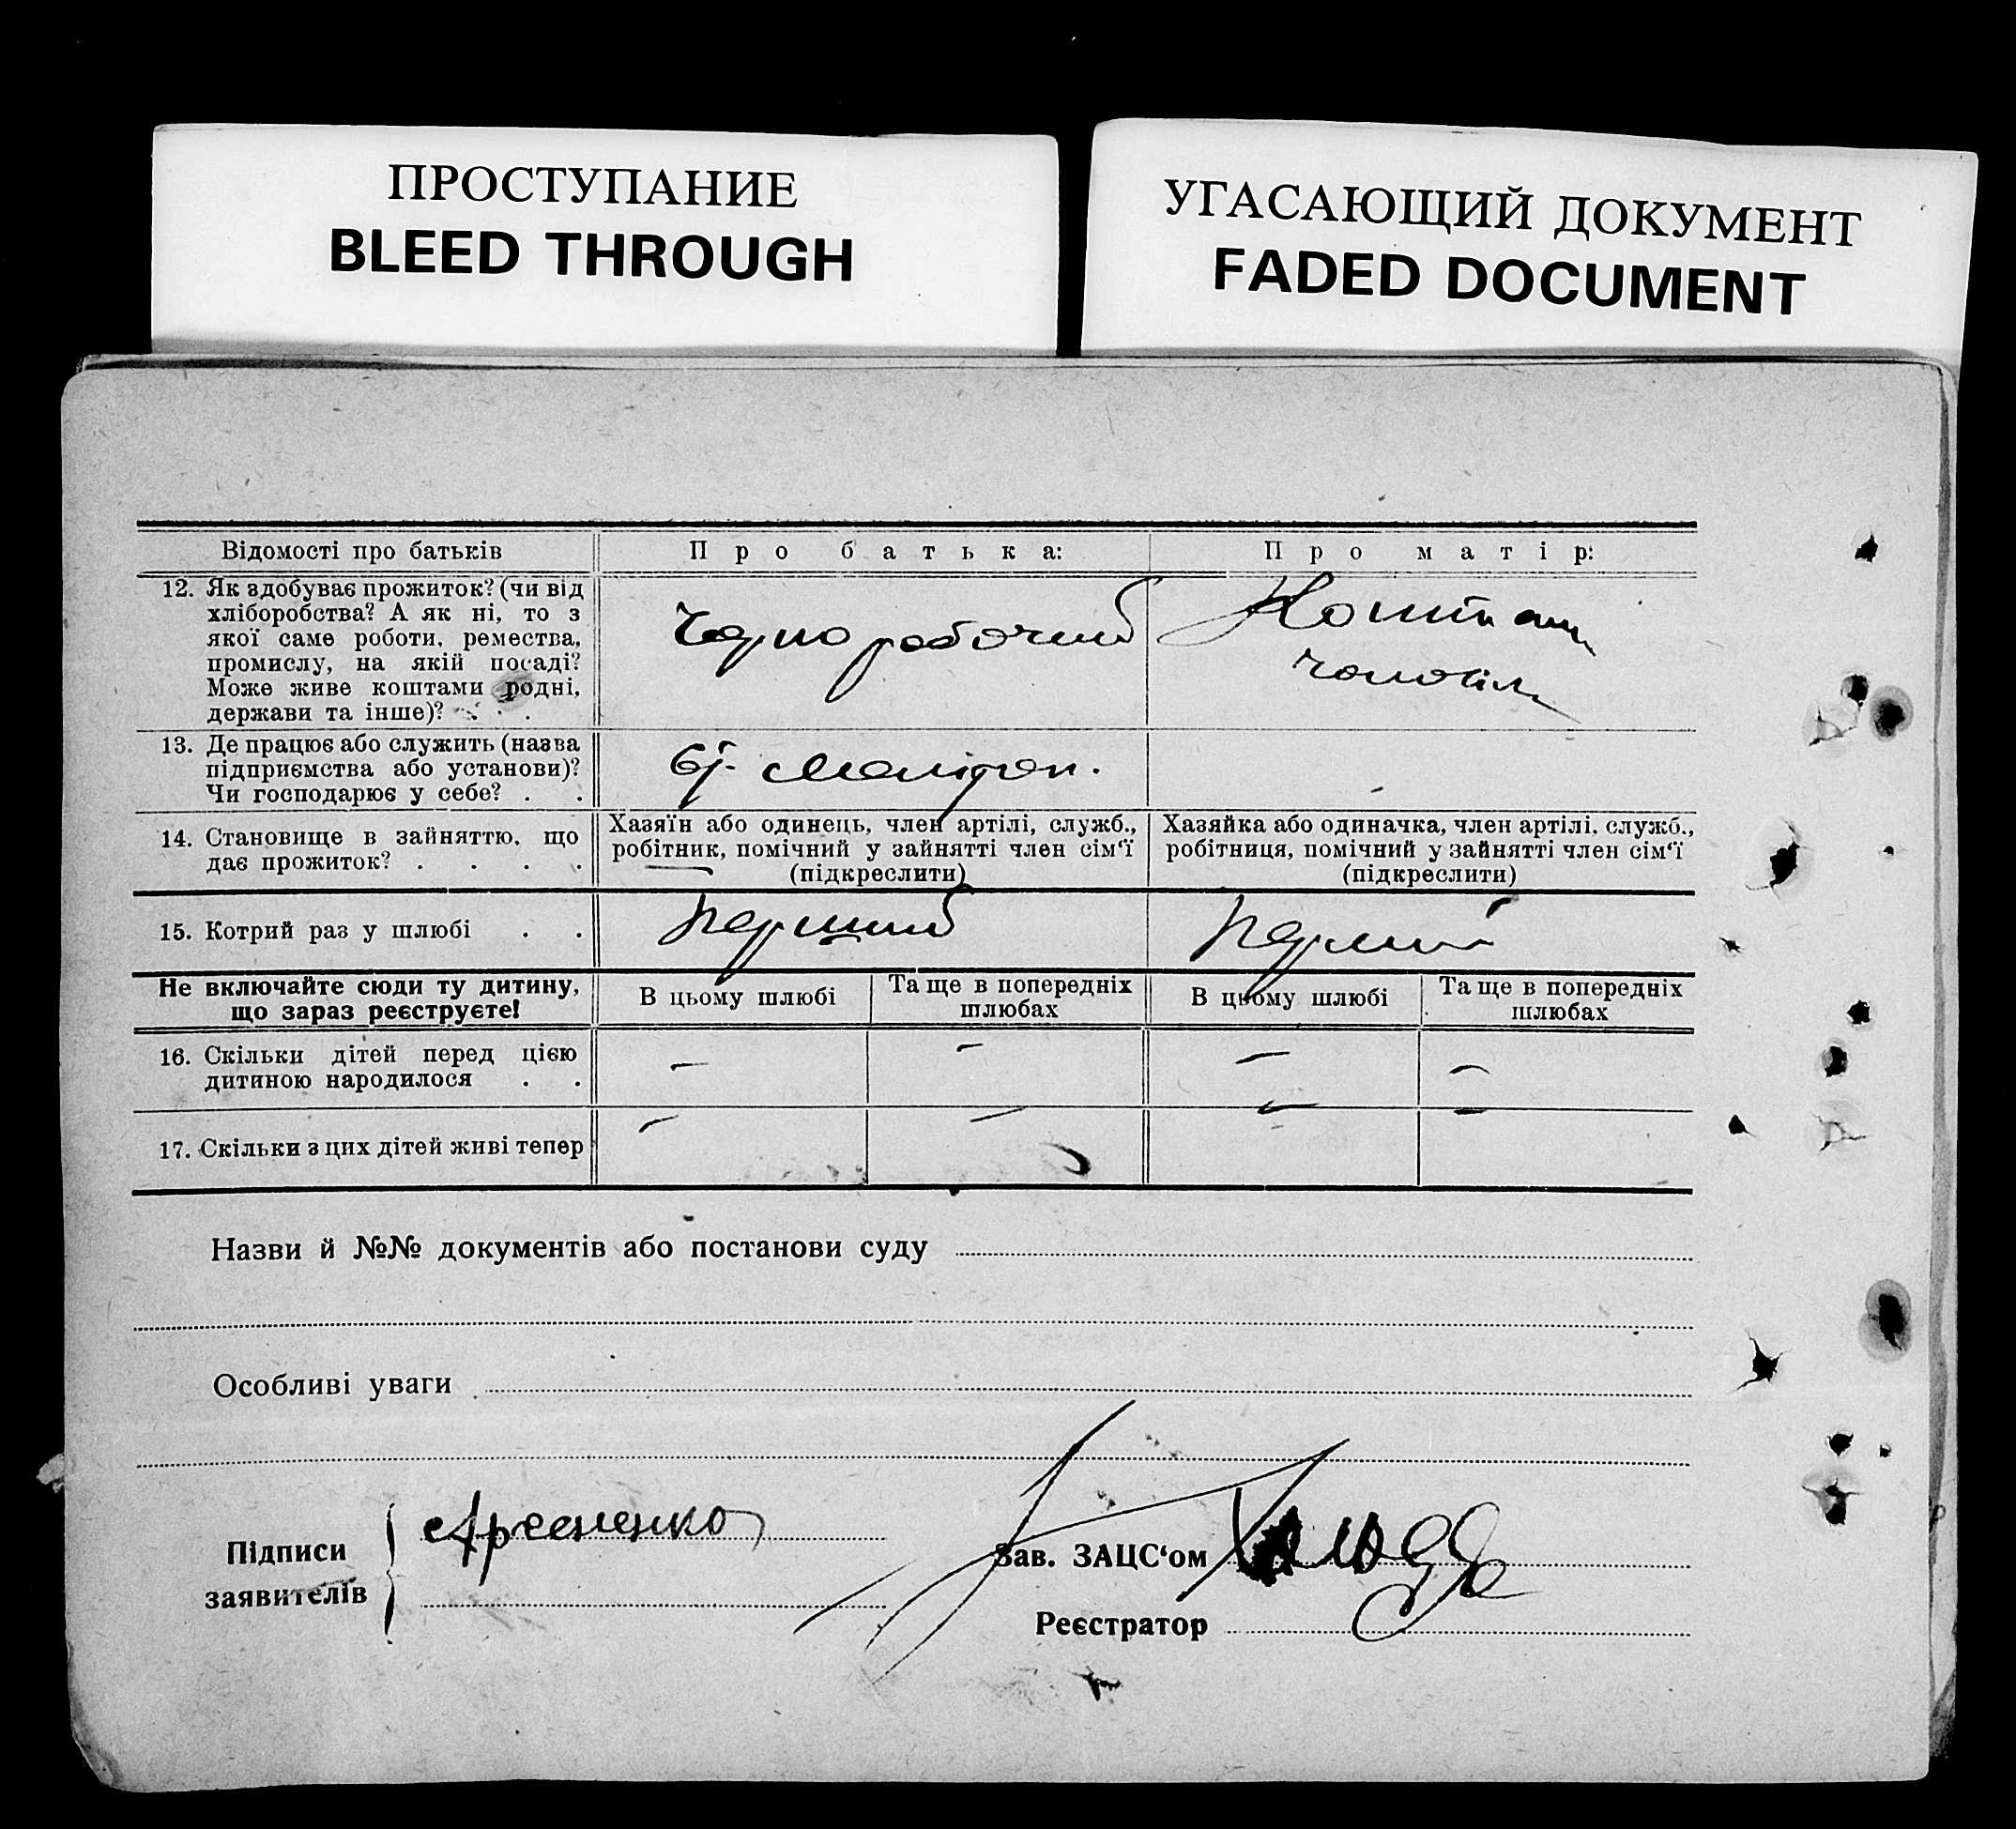 ПРОСТУПАНИЕ
BLEED THROUGH
УГАСАЮЩИЙ ДОКУМЕНТ
FADED DOCUMENT
Відомості про батьків
Про батька:
Про матір:
12. Як здобуває прожиток? (чи від
хліборобства? А як ні, то з
якої саме роботи, ремества,
промислу, на якій посаді?
Може живе коштами родні,
держави та інше)? . . .
Чорноробочий
Коштом
чоловіка
13. Де працює або служить (назва
підприємства або установи)?
Чи господарює у себе? . .
14. Становище в зайняттю, що
дає прожиток? . . . .
Хазяїн або одинець, член артілі, служб.,
робітник, помічний у зайнятті член сім‘ї
(підкреслити)
Хазяйка або одиначка, член артілі, служб.,
робітниця, помічний у зайнятті член сім‘ї
(підкреслити)
15. Котрий раз у шлюбі . .
перший
перший
Не включайте сюди ту дитину,
що зараз реєструєте!
В цьому шлюбі
Та ще в попередніх
шлюбах
В цьому шлюбі
Та ще в попередніх
шлюбах
16. Скільки дітей перед цією
дитиною народилося . .
– – – –
17. Скільки з цих дітей живі тепер
– – – –
Назви й №№ документів або постанови суду
Особливі уваги
Підписи
заявителів
Арсененко
Зав. ЗАЦС‘ом
Реєстратор